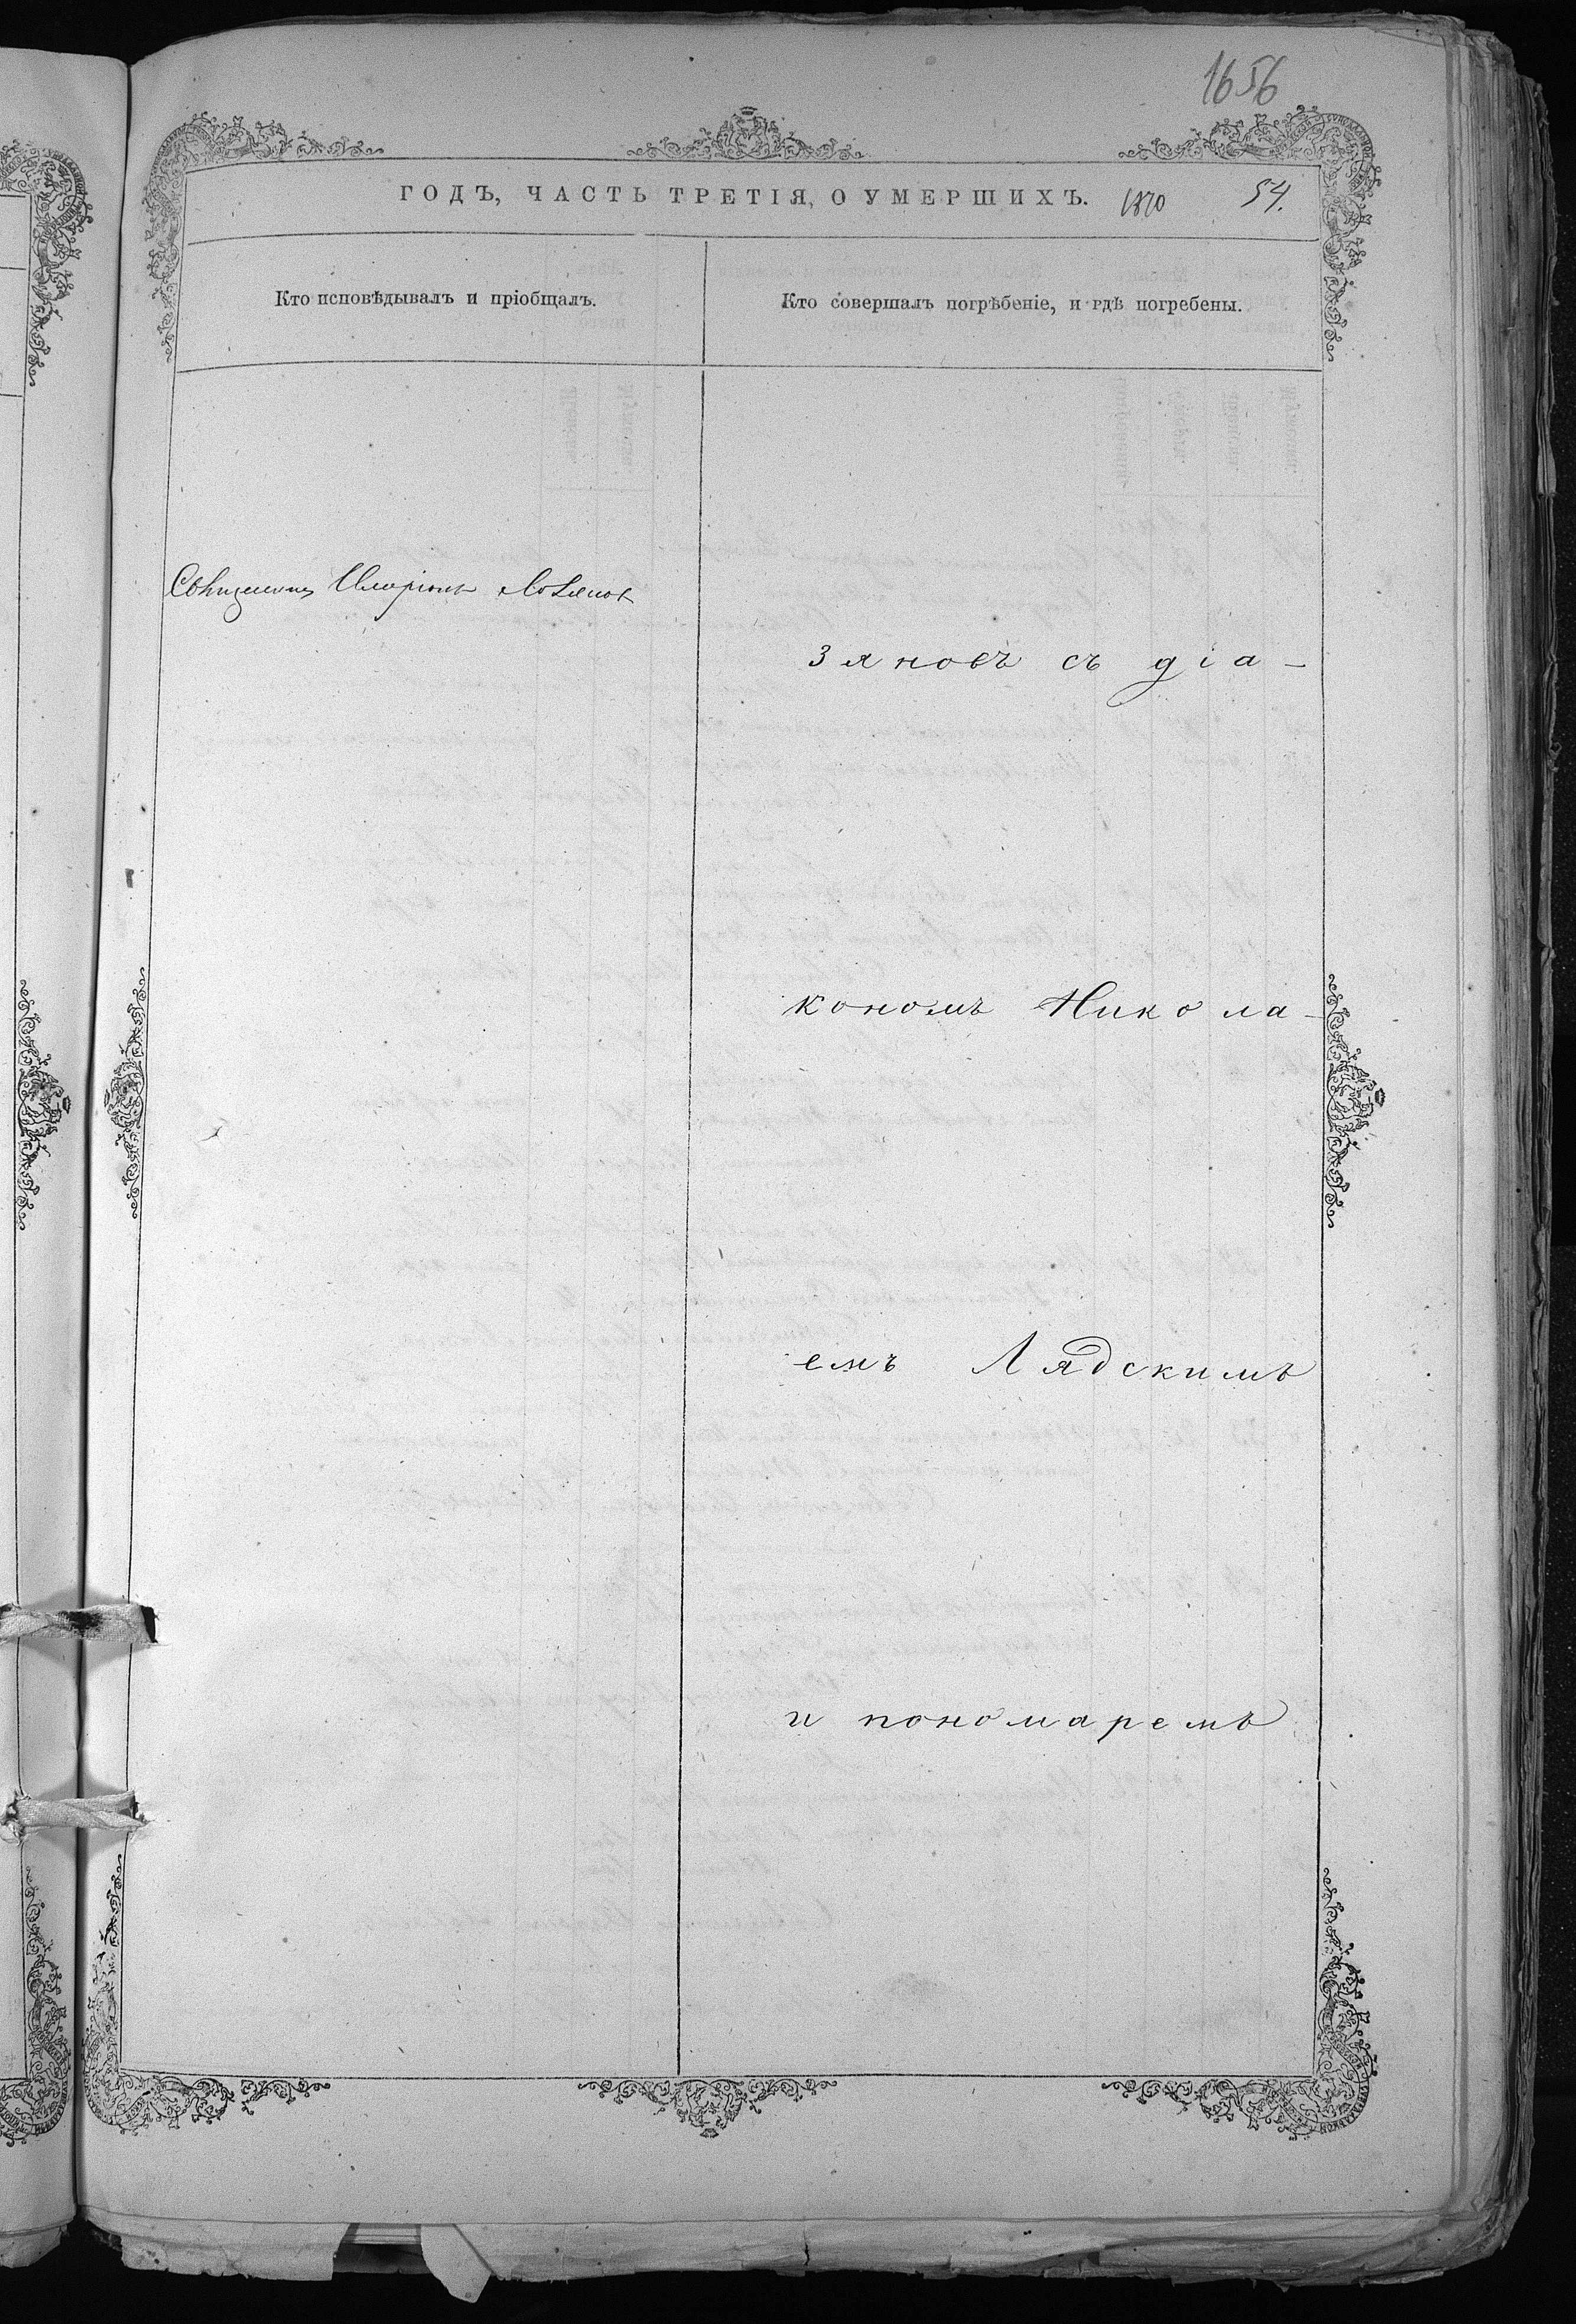 1656
ГОДЪ, ЧАСТЬ ТРЕТІЯ, О УМЕРШИХЪ. 1870 54.
Кто исповѣдывалъ и пріобщалъ.
Кто совершалъ погрѣбеніе, и гдѣ погребены.
Священникъ Иларіонъ
зяновъ съ діа-
кономъ Никола-
емъ Лядскимъ
и пономаремъ